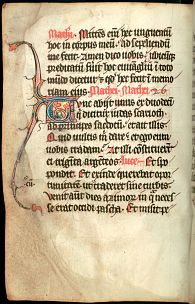 Mittens eñ hec unguentum
hoc in corpus meū. ad sepeliendū
me fecit. amen dico uobis. ubicūqꝫ
predicatū fuit hoc euuāgłiū ī toto
mūdo dicetur et qđ hec fecit ī memo
riam eius. Mathei. 
unc abiit unus de duodecī
qui dicitur iudas scarioth
ad principes sacerdotū. et ait illis.
Quid uultis m̄ dare et ego eum
uobis tradam. At illi cōstituerūt
ei triginta argēteos. luce. Et spo
pondit. Et exinde querebat opor
tunitatem ut traderet sine turbis
uenit aut̄ dies azimorum in qua neces
se erat occidi pascha. Et misit pe